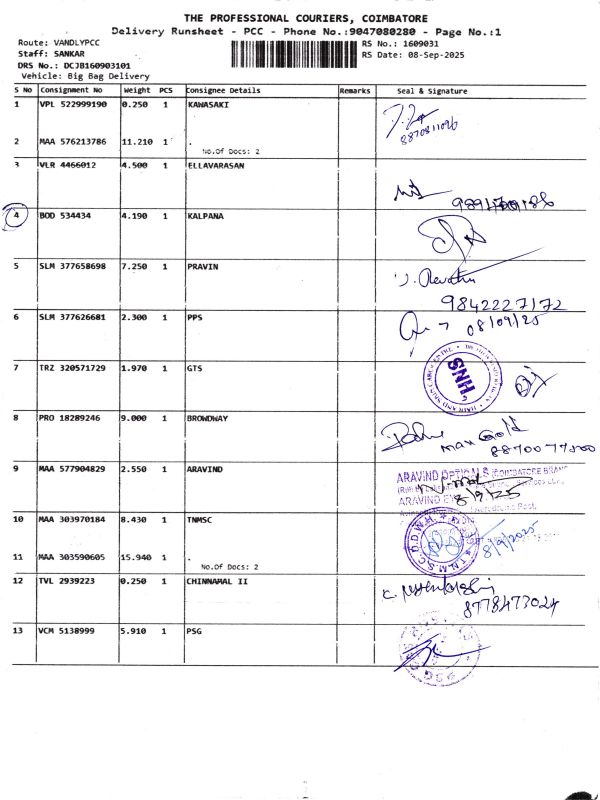 THE PROFESSIONAL COURIERS, COIMBATORE
Delivery Runsheet - PCC - Phone No.:9047080280 - Page No.:1
Route: VANDLYPCC
RS No.: 1609031
Staff: SANKAR
RS Date: 08-Sep-2025
DRS No.: DCJB160903101
Vehicle: Big Bag Delivery
S No Consignment No Weight PCS Consignee Details Remarks Seal & Signature
1 VPL 522999190 0.250 1 KAWASAKI
8870811096
2 MAA 576213786 11.210 1 .
No.Of Docs: 2
3 VLR 4466012 4.500 1 ELLAVARASAN
4 BOD 534434 4.190 1 KALPANA
5 SLM 377658698 7.250 1 PRAVIN
9842227172
6 SLM 377626681 2.300 1 PPS
08/09/25
7 TRZ 320571729 1.970 1 GTS
SNH
8 PRO 18289246 9.000 1 BROWDWAY
Max Gold
9 MAA 577904829 2.550 1 ARAVIND
ARAVIND OPTICALS (COIMBATORE BRAN
8/9/25
10 MAA 303970184 8.430 1 TNMSC
8/9/2025
11 MAA 303590605 15.940 1 .
No.Of Docs: 2
12 TVL 2939223 0.250 1 CHINNAMAL II
8778473024
13 VCM 5138999 5.910 1 PSG
PSG